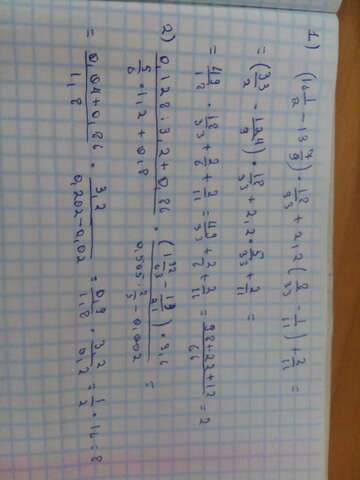 1) (16 1/2 − 13 7/9) · 18/33 + 2,2 (8/33 − 1/11) + 2/11 =
= (33/2 − 124/9) · 18/33 + 2,2 · 5/33 + 2/11 =
= 49/18 · 18/33 + 2/6 + 2/11 = 49/33 + 2/6 + 2/11 = (98+22+12)/66 = 2
2) (0,128 : 3,2 + 0,86)/(5/6 · 1,2 + 0,8) · ((1 32/63 − 13/21) · 3,6)/(0,505 · 2/5 − 0,002) =
= (0,04+0,86)/1,8 · 3,2/(0,202−0,002) = 0,9/1,8 · 3,2/0,2 = 1/2 · 16 = 8